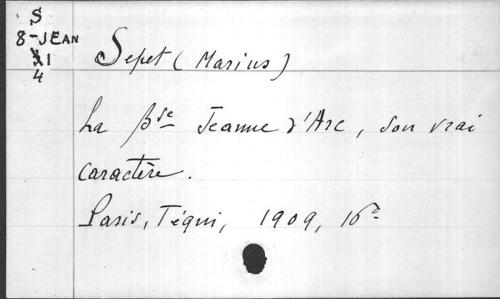 S
8-JEAN
31
4
Sepet (Marius)
La Bse Jeanne d'Arc, son vrai
caractère.
Paris, Téqui, 1909, 16°